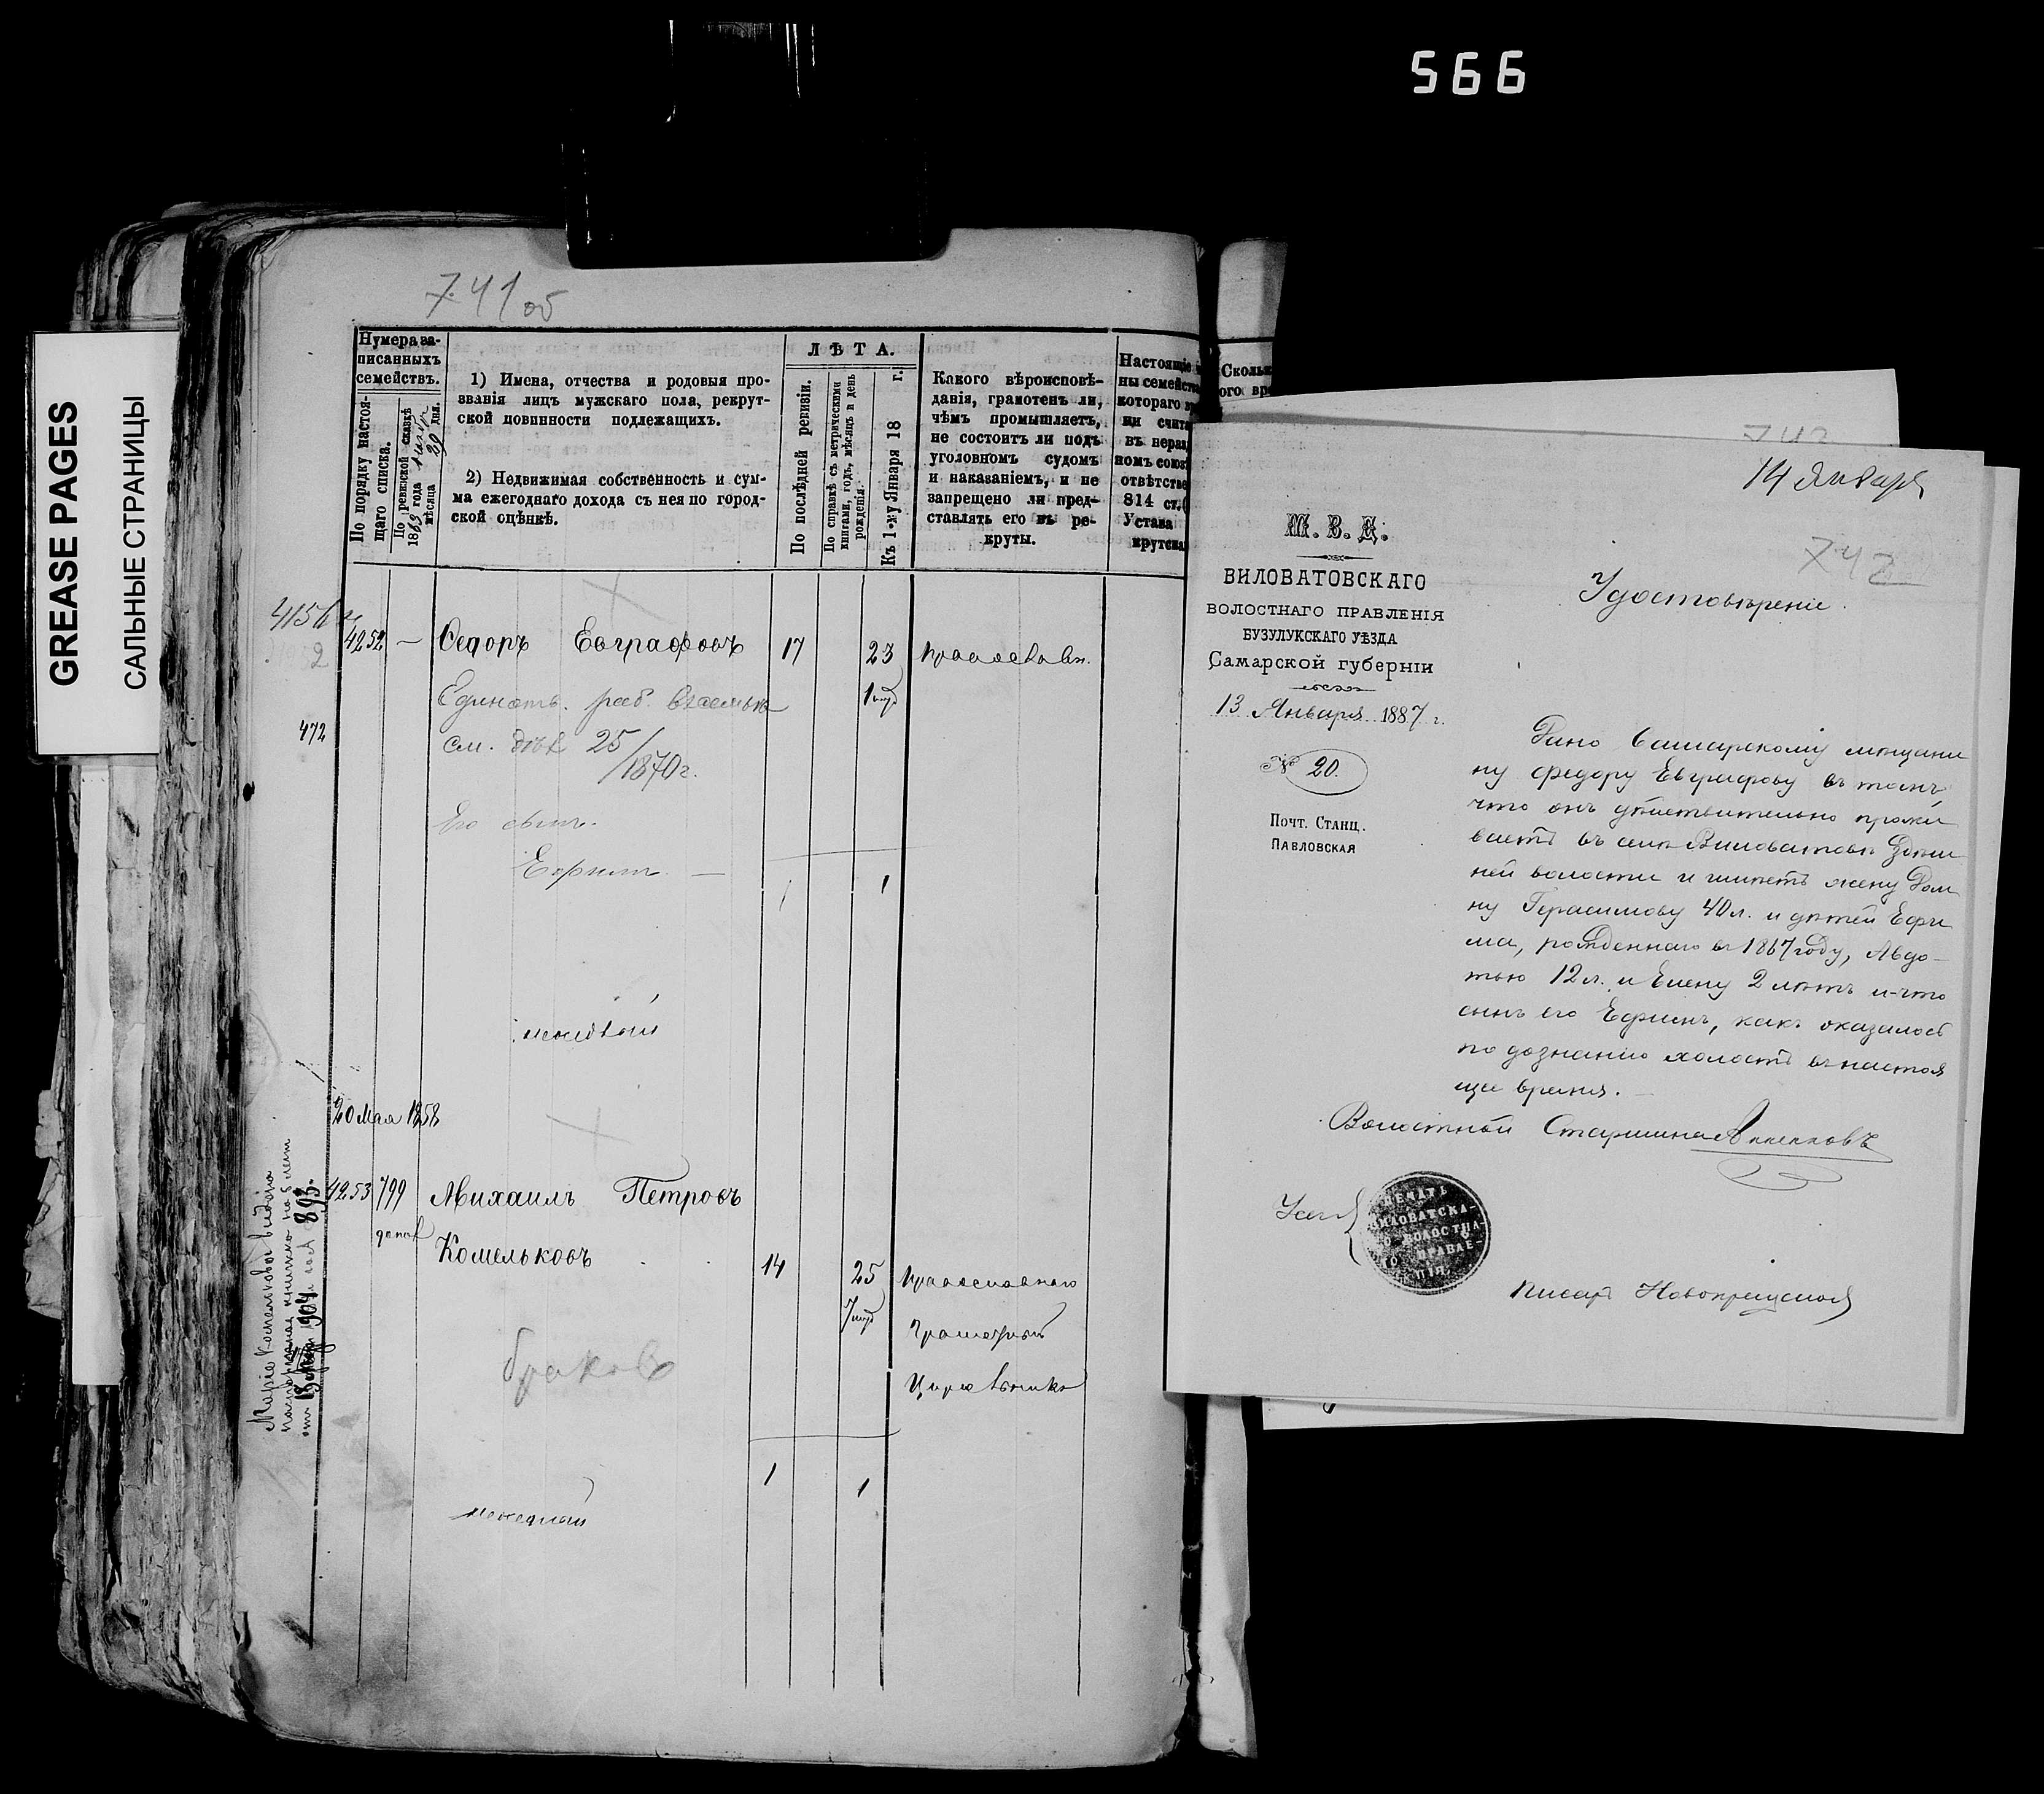 566
GREASE PAGES
САЛЬНЫЕ СТРАНИЦЫ
741об
Нумера за-
писанныхъ
семействъ.
По порядку настоя-
щаго списка.
По ревизской сказкѣ
1863 года
мѣсяца 29 дня.
1) Имена, отчества и родовыя про-
званія лицъ мужскаго пола, рекрут-
ской повинности подлежащихъ.
2) Недвижимая собственность и сум-
ма ежегоднаго дохода съ нея по город-
ской оцѣнкѣ.
ЛѢТА.
По послѣдней ревизіи.
По справкѣ съ метрическими
книгами, годъ, мѣсяцъ и день
рожденія.
Къ 1-му Января 18 г.
Какого вѣроисповѣ-
данія, грамотенъ ли,
чѣмъ промышляетъ,
не состоитъ ли подъ
уголовномъ судомъ
и наказаніемъ, и не
запрещено ли пред-
ставлять его въ ре-
круты.
Настоящіе
ны семейств
котораго
щи счита
въ нераз
номъ союз
отвѣтстве
814 ст.
Устава
крутска
Сколь
ого вр
4156
2
4252 — Ѳедоръ Евграфовъ 17 23 православн.
Единств. раб. въ семьѣ 1
472
см. дѣл 25/1870 г.
Его сынъ.
Ефимъ —
1 1
20 Мая 1858
4253 799 Михаилъ Петровъ
Комельковъ 14 25 православнаго
7 грамотный
браков
1 1
Марiе Комельковой выдана
паспортная книжка на 5 лет
1904 893
742
14 Января
742
М. В. Д.
ВИЛОВАТОВСКАГО
ВОЛОСТНАГО ПРАВЛЕНІЯ
БУЗУЛУКСКАГО УѢЗДА
Самарской губерніи
13 Января 1887 г.
№ 20.
Почт. Станц.
ПАВЛОВСКАЯ
Удостовѣреніе.
Дано Самарскому мѣщани
ну Федору Евграфову въ томъ,
что онъ дѣйствительно прожи
ваетъ въ селѣ Виловатовѣ здѣш
ней волости и имѣетъ жену Дом
ну Герасимову 40 л. и дѣтей Ефи
ма, рожденнаго въ 1867 году, Авдо-
тью 12 л. и Елену 2 лѣтъ и что
сынъ его Ефимъ, какъ оказалось
по дознанію холостъ въ настоя
щее время.
Волостной Старшина
ПЕЧАТЬ
ВИЛОВАТСКА-
ГО ВОЛОСТНА-
ГО ПРАВЛЕ-
НІЯ.
Писарь